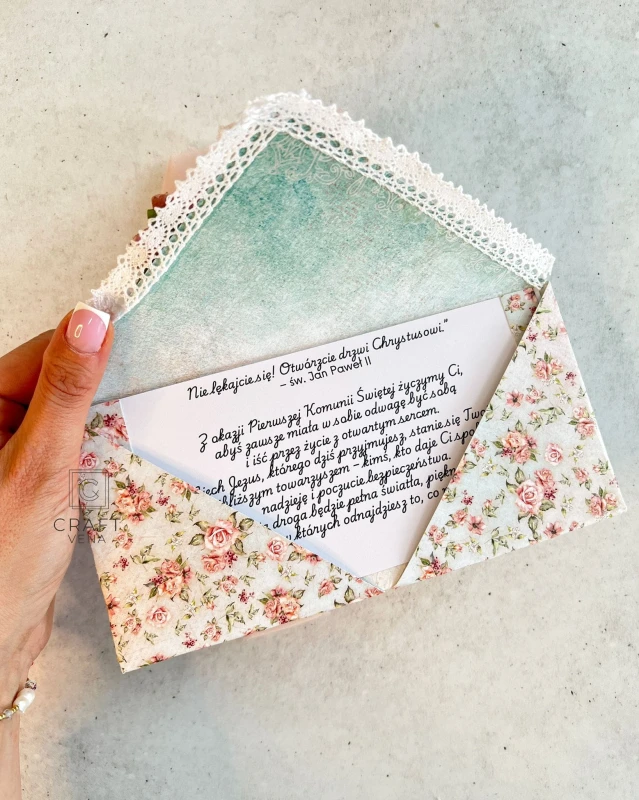 Nie lękajcie się! Otwórzcie drzwi Chrystusowi."
– św. Jan Paweł II
Z okazji Pierwszej Komunii Świętej życzymy Ci,
abyś zawsze miała w sobie odwagę być sobą
i iść przez życie z otwartym sercem.
Jezus, którego dziś przyjmujesz, stanie się
towarzyszem – kimś, kto daje Ci
nadzieję i poczucie bezpieczeństwa.
droga będzie pełna światła,
których odnajdziesz to, co
C
CRAFT
VENA